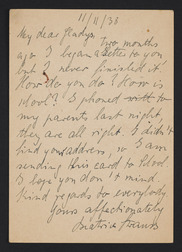 11/11/38
My dear Gladys,
Two months
ago I began a letter to you,
but I never finished it.
How do you do? How is
I phoned
my parents last night,
they are all right. I didn't
find your address, so I am
sending this card to
I hope you don't mind.
Kind regards to everybody
Yours affectionately